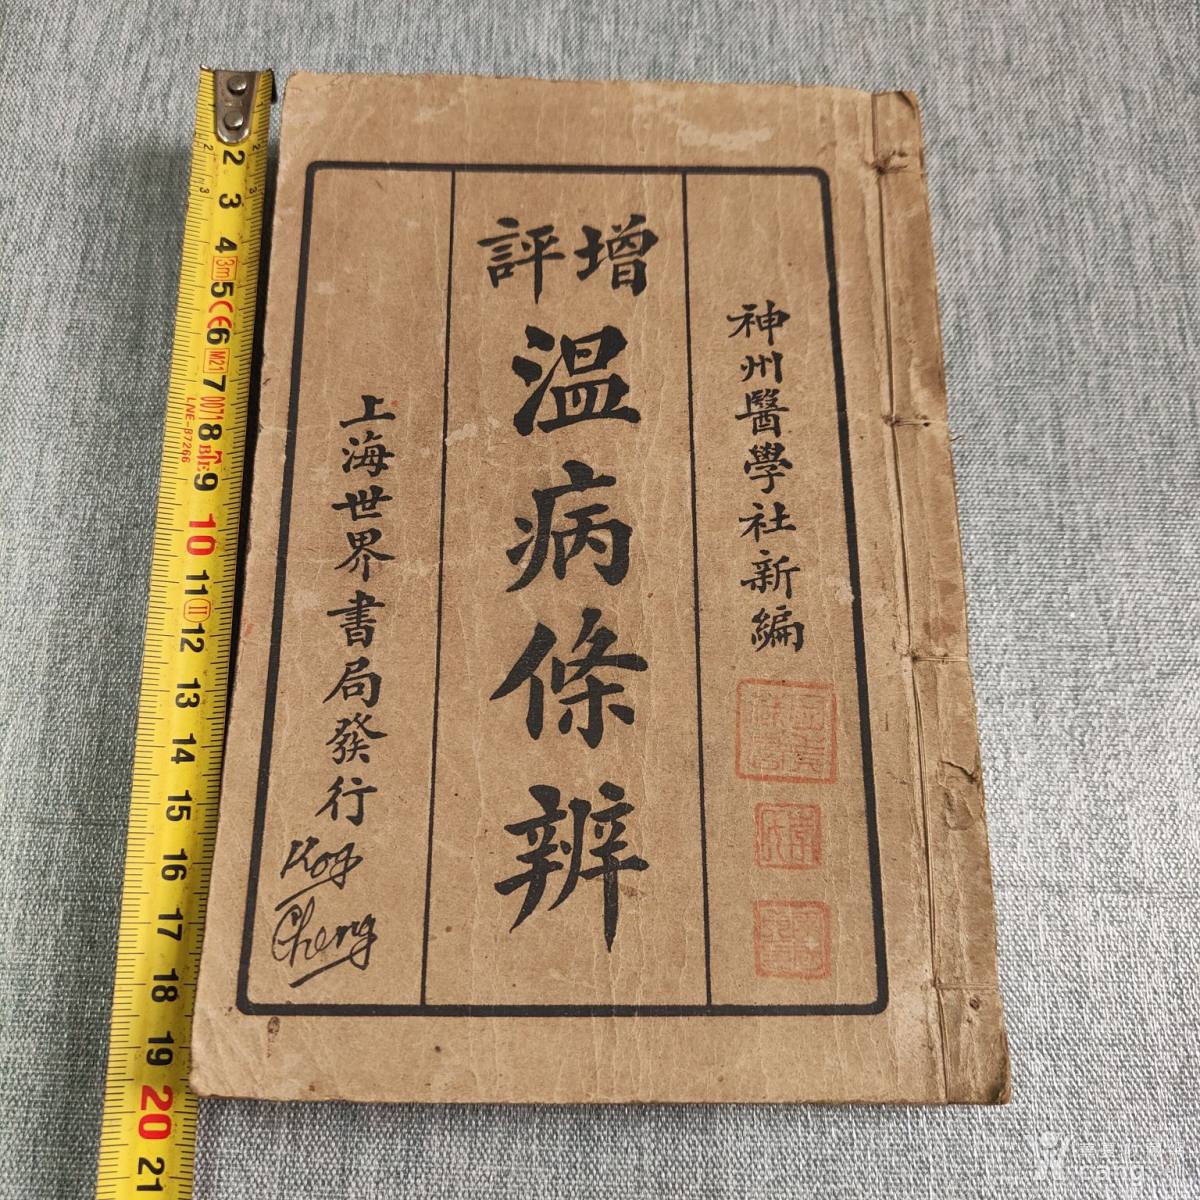 神州醫學社新編
增評
溫病條辨
上海世界書局發行
Cheng
2
3
4
3m
5
CE
6
M21
7
0071
8
LNE-87266
9
10
11
II
12
13
14
15
16
17
18
19
20
21